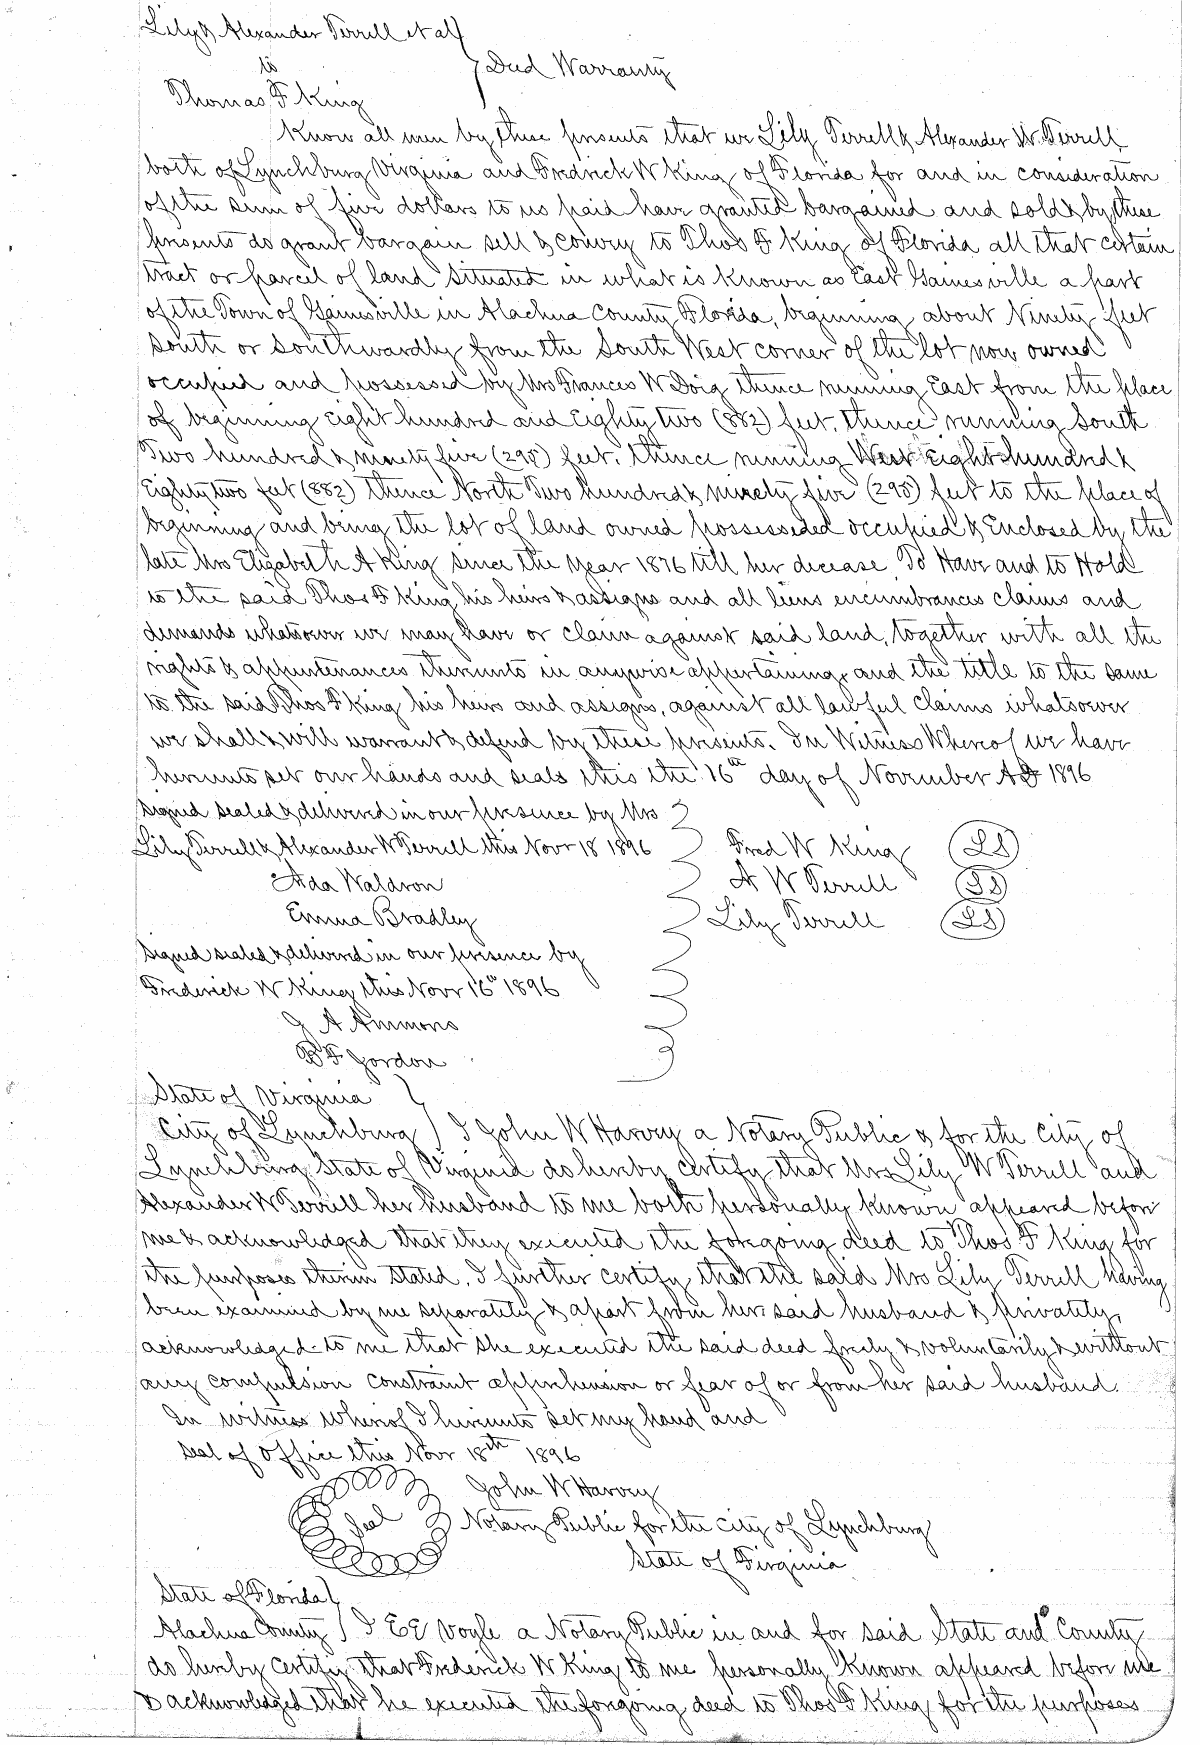 Lily & Alexander Terrell et al
to
Deed Warranty
Thomas F King
Know all men by these presents that we Lily Terrell & Alexander W. Terrell
both of Lynchburg Virginia and Fredrick W King of Florida for and in consideration
of the sum of five dollars to us paid have granted bargained and sold & by these
presents do grant bargain sell & convey to Thos F King of Florida all that certain
tract or parcel of land situated in what is known as East Gainesville a part
of the Town of Gainesville in Alachua County Florida, beginning about Ninety feet
South or Southwardly from the South West corner of the lot now owned
occupied and possessed by Mrs Frances W Doig thence running East from the place
of beginning Eight hundred and Eighty two (882) feet, thence running South
Two hundred & ninety five (295) feet, thence running West Eight hundred &
Eighty two feet (882) thence North Two hundred & ninety five (295) feet to the place of
beginning and being the lot of land owned possesseded occupied & Enclosed by the
late Mrs Elizabeth A King since the year 1876 till her decease. To Have and to Hold
to the said Thos F King his heirs & assigns and all liens encumbrances claims and
demands whatsover we may have or claim against said land, together with all the
rights & appurtenances thereunto in anywise appertaining, and the title to the same
to the said Thos F King his heirs and assigns, against all lawful claims whatsoever
we shall & will warrant & defend by these presents. In Witness Whereof we have
hereunto set our hands and seals this the 16th day of November AD 1896
Signed sealed & delivered in our presence by Mrs
Lily Terrell & Alexander W Terrell this Novr 18 1896
Fred W King LS
Ada Waldron
A W Terrell LS
Emma Bradley
Lily Terrell LS
Signed sealed & delivered in our presence by
Frederick W King this Novr 16th 1896
J A Ammons
B F Jordon
State of Virginia
City of Lynchburg I John W Harvey a Notary Public & for the city of
Lynchburg State of Virginia do hereby certify that Mrs Lily W Terrell and
Alexander W Terrell her husband to me both personally known appeared before
me & acknowledged that they executed the foregoing deed to Thos F King for
the purposes therein stated. I further certify that the said Mrs Lily Terrell having
been examined by me separately & apart from her said husband & privately,
acknowledged to me that she executed the said deed freely & voluntarily & without
any compulsion constraint apprehension or fear of or from her said husband.
In witness whereof I hereunto set my hand and
seal of Office this Novr 18th 1896
John W Harvey
Seal
Notary Public for the city of Lynchburg
State of Virginia
State of Florida
Alachua County I E E Voyle a Notary Public in and for said State and County
do hereby certify that Frederick W King to me personally known appeared before me
& acknowledged that he executed the forgoing deed to Thos F King for the purposes